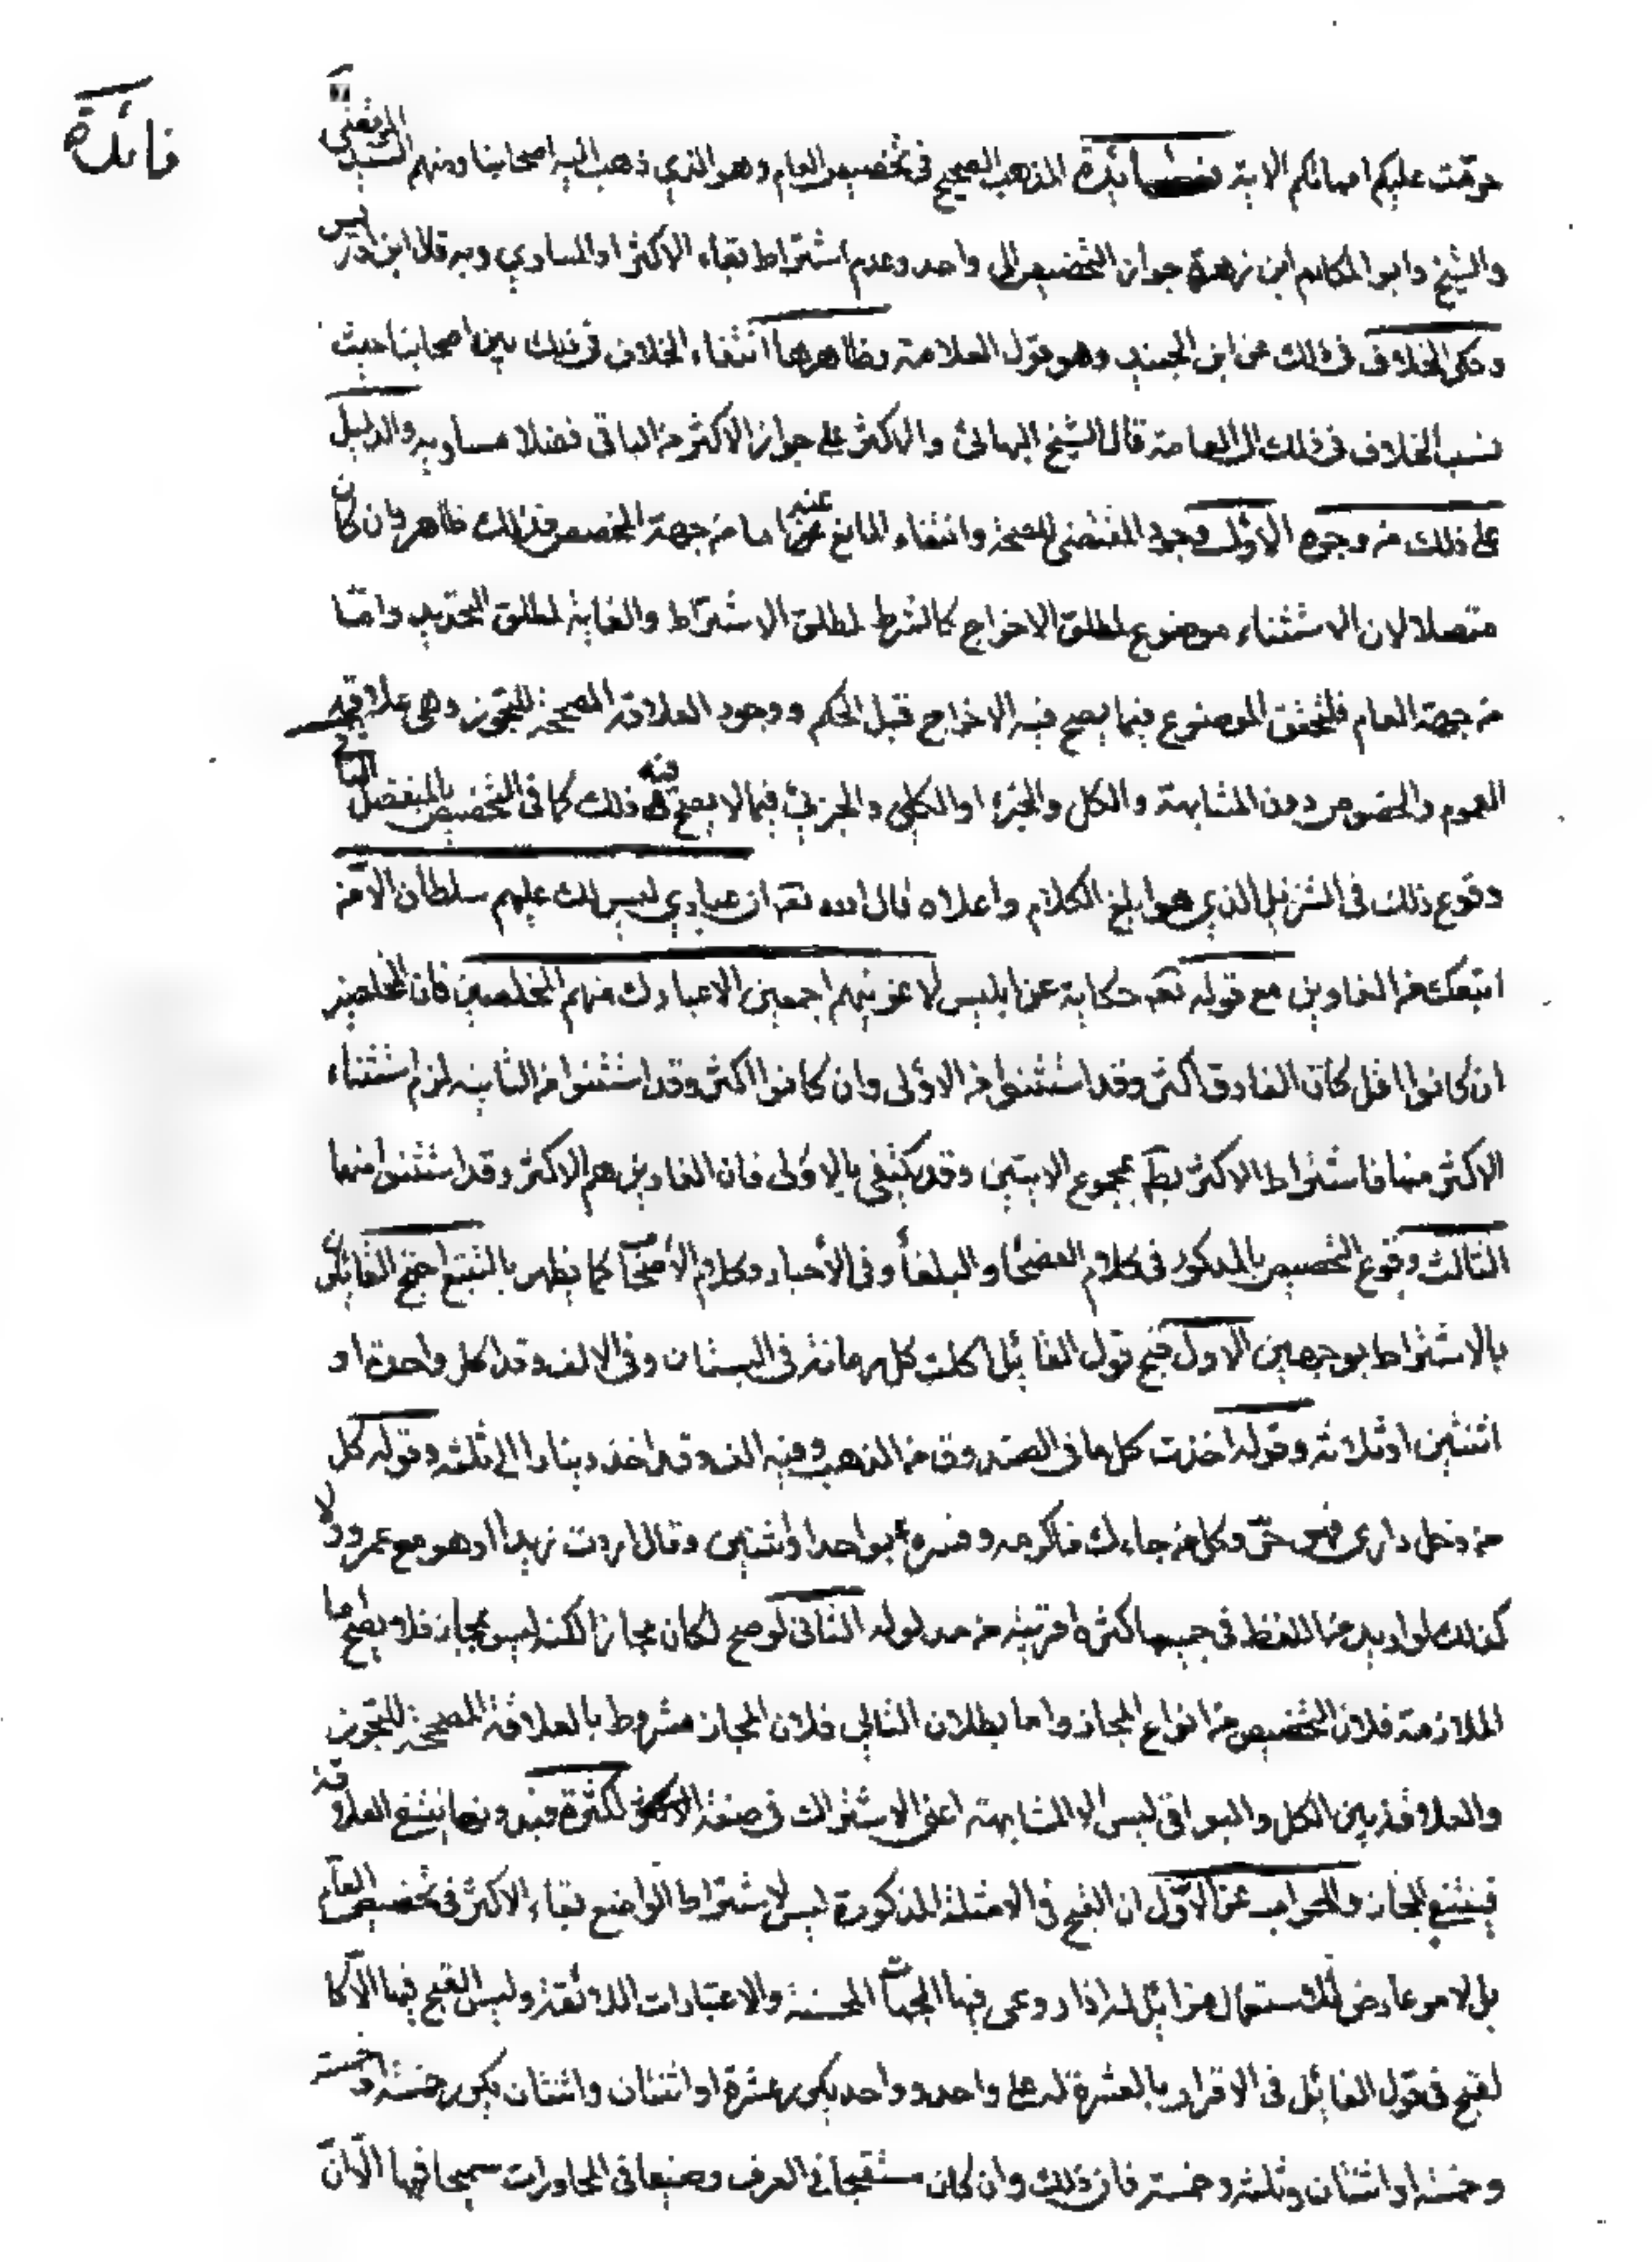 فائدة
حرّمت عليكم امهاتكم الاية فائدة المذهب الصحيح فى تخصيص العام وهو الذي ذهب اليه اصحابنا ومنهم السيد المرتضى
والشيخ وابو المكارم ابن زهرة جواز التخصيص الى واحد وعدم اشتراط بقاء الاكثر او المساوي وبه قال ابن ادريس
وحكى الخلاف فى ذلك عن ابن الجنيد وهو قول العلامة وظاهرها انتفاء الخلاف فى ذلك بين اصحابنا حيث
نسب الخلاف فى ذلك الى العامة قال الشيخ البهائى والاكثر على جواز الاكثر من الباقى فضلا مساويه والدليل
على ذلك من وجوه الاول وجود المقتضى للصحة وانتفاء المانع عنه اما من جهة المخصص فذلك ظاهر وان كان
متصلا لان الاستثناء موضوع لمطلق الاخراج كالشرط لمطلق الاشتراط والغاية لمطلق التحديد وامّا
من جهة العام فلتحقق الموضوع فيما يصح فيه الاخراج قبل الحكم ووجود العلاقة المصححة للتجوز وهى علاقة
العموم والخصوص دون المشابهة والكل والجزء او الكلى والجزئى فيما لا يصح فيه ذلك كما فى التخصيص بالمنفصل الثانى
وقوع ذلك فى التنزيل الذي هو ابلغ الكلام واعلاه قال الله تعه ان عبادي ليس لك عليهم سلطان الا من
اتبعك من الغاوين مع قوله تعه حكاية عن ابليس لاغوينهم اجمعين الا عبادك منهم المخلصين فان المخلصين
ان كانوا اقل كان الغاوون اكثر وقد استثنوا من الاولى وان كانوا اكثر وقد استثنوا من الثانيه لزم استثناء
الاكثر منها فاشتراط الاكثر يبطله مجموع الايتين وقد يكتفى بالاولى فان الغاوين هم الاكثر وقد استثنوا منها
الثالث وقوع التخصيص المذكور فى كلام الفصحا والبلغا وفى الاخبار وكلام الاصحا كما يظهر بالتتبع احتج القائلون
بالاشتراط بوجهين الاول قبح قول القائل اكلت كل رمانة فى البستان وفى الالف وقد اكل واحدة او
اثنتين او ثلاثه وقوله اخذت كل ما فى الصندوق من الذهب وفيه الف وقد اخذ دينارا الى ثلثه وقوله كل
من دخل دارى فهو حرّ وكل من جاءك فاكرمه وفسره بواحد او اثنين وقال اردت زيدا او هو مع عمرو ولا
كذلك لو اريد من اللفظ فى جميعها كثرة قريبة من مدلوله الثانى لو صح لكان مجازا لكنه ليس بمجاز فلا يصح اما
الملازمة فلان التخصيص من انواع المجاز واما بطلان التالي فلان المجاز مشروط بالعلاقة المصححة للتجوز
والعلاقة بين الكل والبواقى ليس الا المشابهة اعنى الاشتراك فى صفة الكثرة فبدونها ينتفى العلاقة
فيمتنع المجاز والجواب عن الاوّل ان القبح فى الامثلة المذكورة ليس لاشتراط الواضع بقاء الاكثر فى تخصيص العام
بل لامر عارض للاستعمال مزايل له اذا روعى فيها الجهات المحسنة والاعتبارات اللائقة وليس القبح فيها الا كا
لقبح فى قول القائل فى الاقرار بالعشرة له على واحد وواحد يكرر عشرة او اثنتان واثنتان يكرر خمسة او خمسة
وخمسة او اثنتان وثلثة وخمسة فان ذلك وان كان مستقبحا فى العرف وضيعا فى المحاورات سميجا فيها الا ان